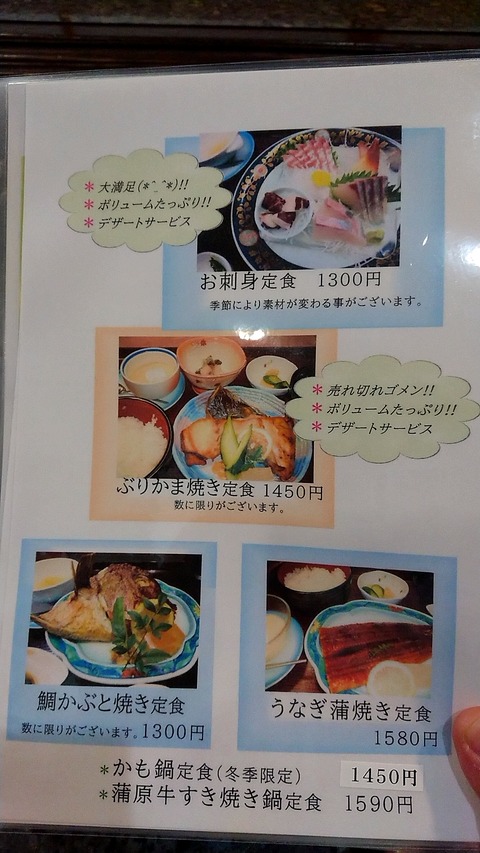 ＊大満足(*^_^*)!!
＊ボリュームたっぷり!!
＊デザートサービス
お刺身定食 1300円
季節により素材が変わる事がございます。
＊売れ切れゴメン!!
＊ボリュームたっぷり!!
＊デザートサービス
ぶりかま焼き定食 1450円
数に限りがございます。
鯛かぶと焼き定食
数に限りがございます。1300円
うなぎ蒲焼き定食
1580円
＊かも鍋定食(冬季限定) 1450円
＊蒲原牛すき焼き鍋定食 1590円